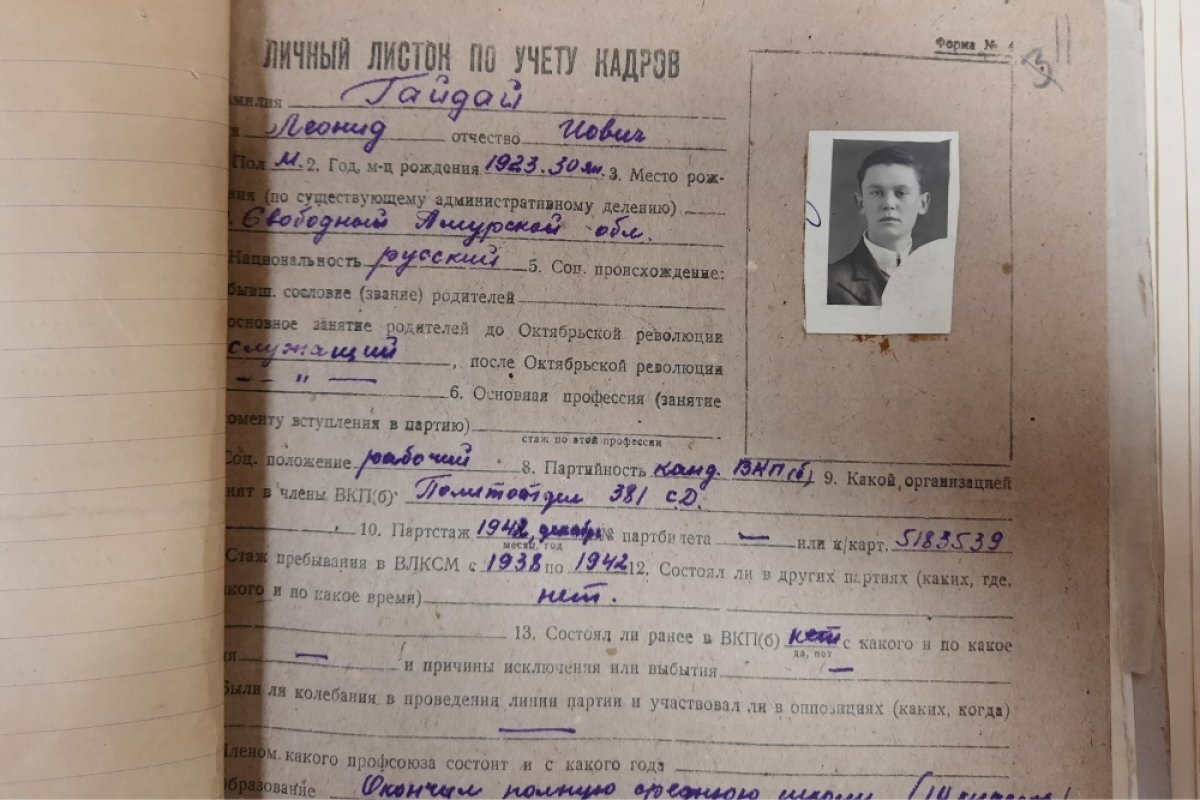 Форма № 4
3 11
ЛИЧНЫЙ ЛИСТОК ПО УЧЕТУ КАДРОВ
амилия Гайдай
я Леонид отчество Иович
Пол М. 2. Год, м-ц рождения 1923. 30 ян. 3. Место рож-
ния (по существующему административному делению)
. Свободный Амурской обл.
Национальность русский 5. Соц. происхождение:
бывш. сословие (звание) родителей
основное занятие родителей до Октябрьской революции
служащий, после Октябрьской революции
— – " —
6. Основная профессия (занятие
оменту вступления в партию)
стаж по этой профессии
Соц. положение рабочий 8. Партийность канд. ВКП(б) 9. Какой организацией
нят в члены ВКП(б) Политотдел 381 сд.
10. Партстаж 1942, декабрь № партбилета — или к/карт. 5183539
месяц, год
Стаж пребывания в ВЛКСМ с 1938 по 1942 12. Состоял ли в других партиях (каких, где,
кого и по какое время) нет.
13. Состоял ли ранее в ВКП(б) нет с какого и по какое
да, нет
мя — и причины исключения или выбытия —
Были ли колебания в проведении линии партии и участвовал ли в оппозициях (каких, когда)
—
Членом какого профсоюза состоит и с какого года
бразование Окончил полную среднюю школу (10 классов)